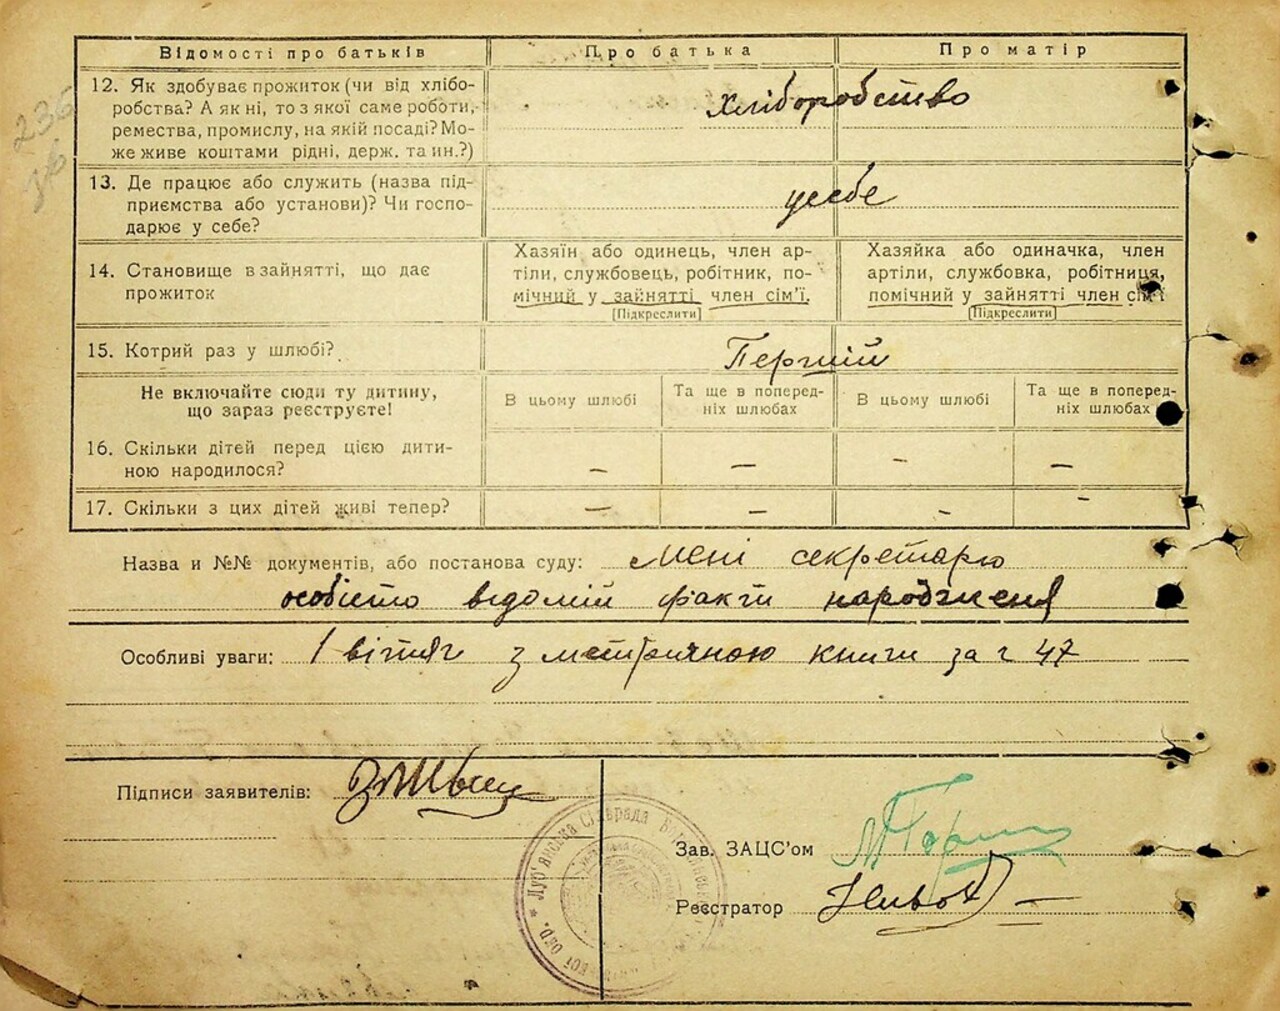 Відомості про батьків Про батька Про матір
12. Як здобуває прожиток (чи від хлібо-
робства? А як ні, то з якої саме роботи,
ремества, промислу, на якій посаді? Мо-
же живе коштами рідні, держ. та ин.?)
Хліборобство
13. Де працює або служить (назва під-
приємства або установи)? Чи госпо-
дарює у себе?
усебе
14. Становище в зайнятті, що дає
прожиток
Хазяїн або одинець, член ар-
тіли, службовець, робітник, по-
мічний у зайнятті член сім'ї.
[Підкреслити]
Хазяйка або одиначка, член
артіли, службовка, робітниця,
помічний у зайнятті член сім'ї
[Підкреслити]
15. Котрий раз у шлюбі?
Перший
Не включайте сюди ту дитину,
що зараз реєструєте!
В цьому шлюбі
Та ще в поперед-
ніх шлюбах
В цьому шлюбі
Та ще в поперед-
ніх шлюбах
16. Скільки дітей перед цією дити-
ною народилося?
— — — —
17. Скільки з цих дітей живі тепер?
— — — —
Назва и №№ документів, або постанова суду: Мені секретарю
особісто відомій факти народженя
Особливі уваги: 1 вітяг з метричною книги за г 47
Підписи заявителів:
Зав. ЗАЦС'ом
Реєстратор
236